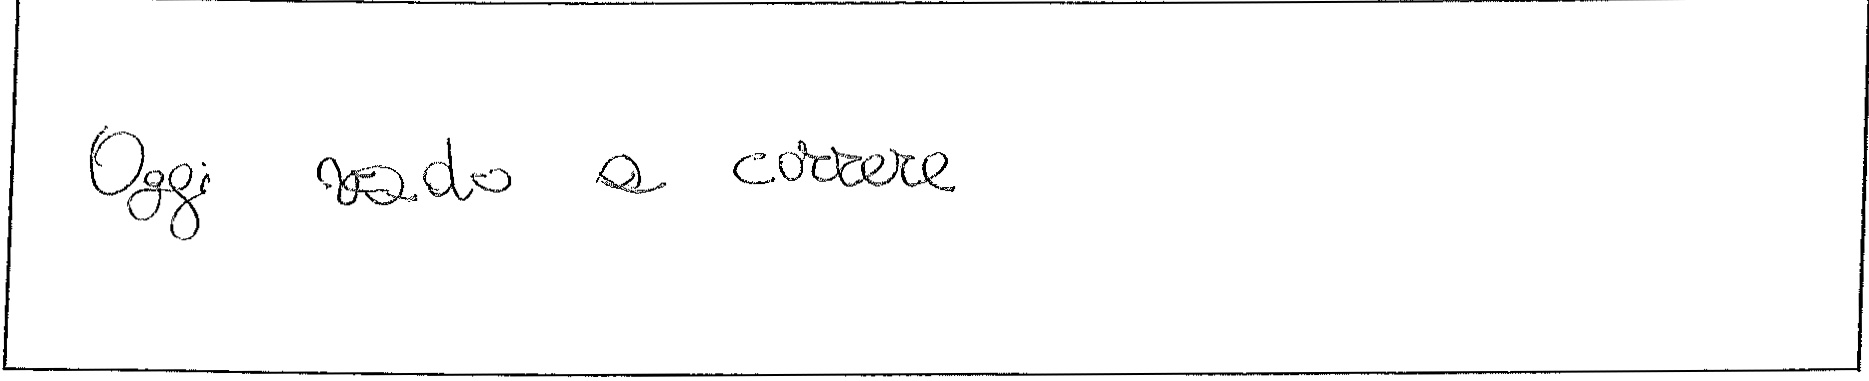 Oggi vado a correre